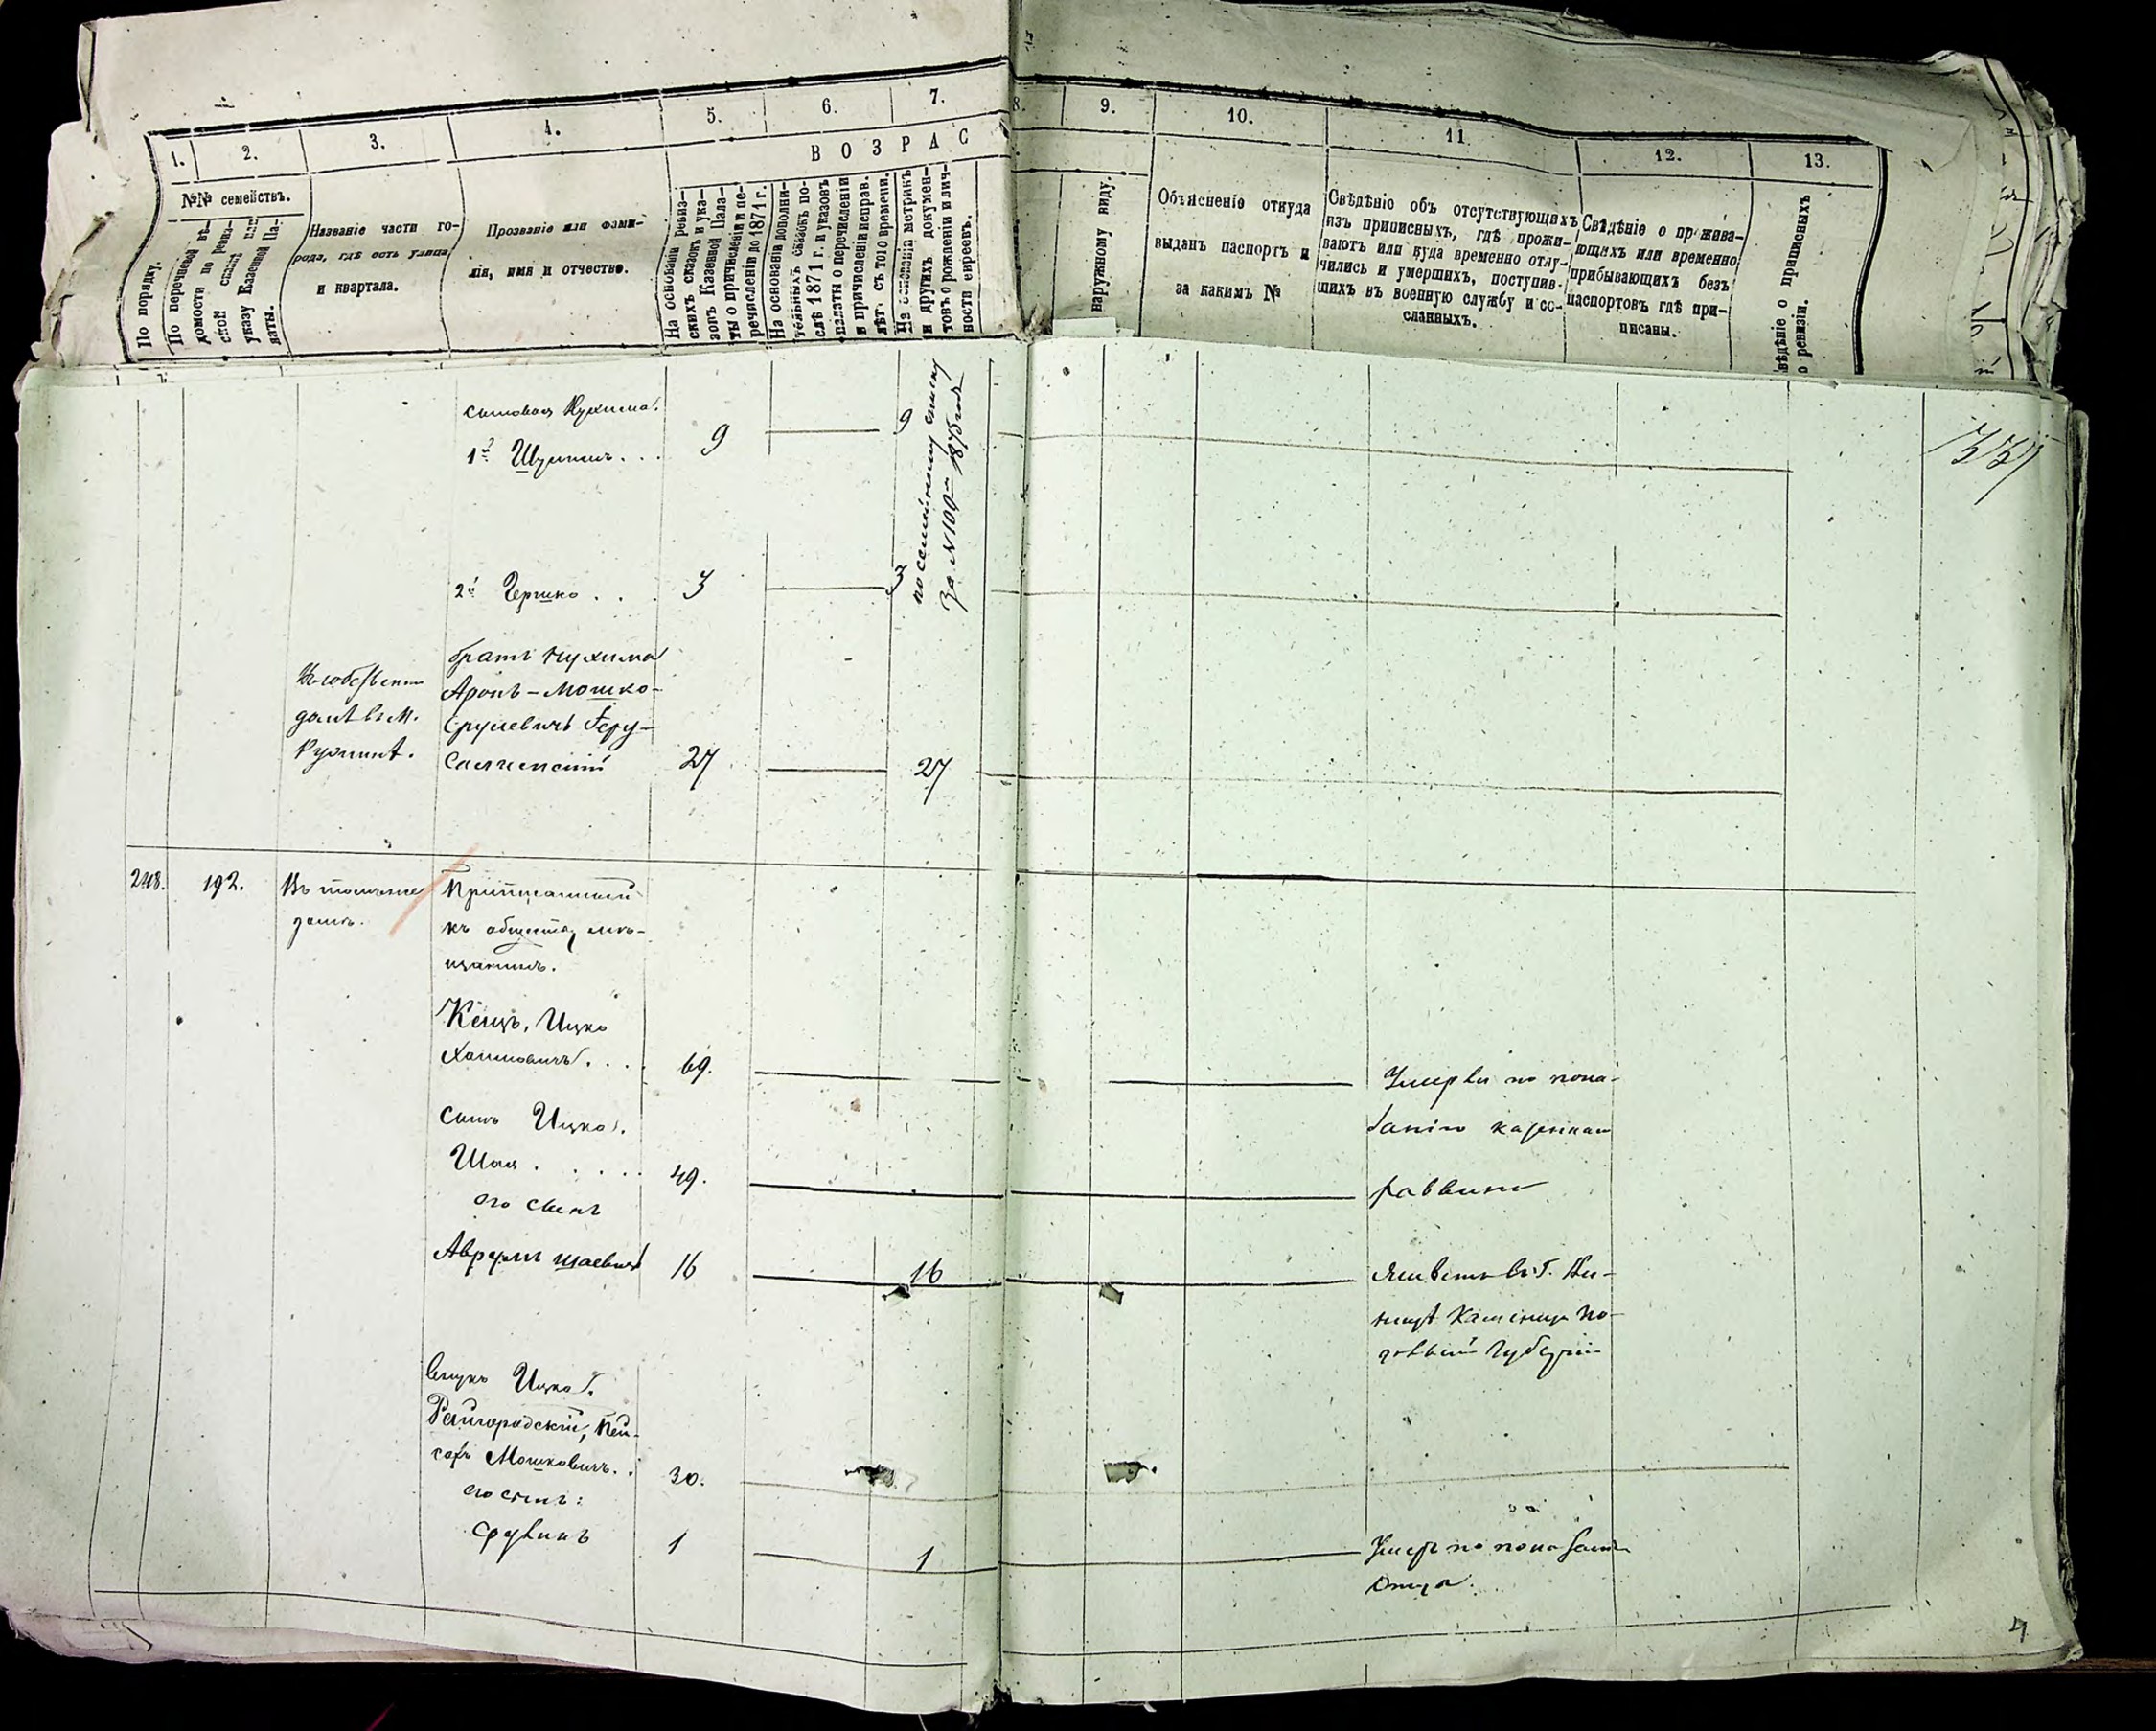 1.
2.
3.
4.
5.
6.
7.
8.
9.
10.
11.
12.
13.
ВОЗРАС
№№ семействъ.
По порядку.
По перечневой вѣ-
домости по ревиз-
ской сказкѣ или
указу Казенной Па-
латы.
Названіе части го-
рода, гдѣ есть улица
и квартала.
Прозваніе или фами-
лія, имя и отчество.
На основаніи ревиз-
скихъ сказокъ и ука-
зовъ Казенной Пала-
ты о причисленіи и пе-
речисленіи до 1871 г.
На основаніи дополни-
тельныхъ сказокъ по-
слѣ 1871 г. и указовъ
палаты о перечисленіи
и причисленіи исправ.
лѣт. съ того времени.
На основаніи метрикъ
и другихъ докумен-
товъ о рожденіи и лич-
ности евреевъ.
наружному виду.
Объясненіе откуда
выданъ паспортъ и
за какимъ №
Свѣдѣніе объ отсутствующихъ
изъ приписныхъ, гдѣ прожи-
ваютъ или куда временно отлу-
чились и умершихъ, поступив-
шихъ въ военную службу и со-
сланныхъ.
Свѣдѣніе о прожива-
ющихъ или временно
прибывающихъ безъ
паспортовъ гдѣ при-
писаны.
вѣдѣніе о приписныхъ
о ревизіи.
сыновья Нухима:
1й Шулимъ . . . 9 9
по семейному списку
за № 109м 1875 года
2й Гершко . . . 3 3
братъ Нухима
Аронъ-Мошко-
Срулевичъ Іеру-
салимскій 27 27
Въ собствен
домѣ въ м.
Ружинѣ.
248. 192. домѣ.
Приписанный
къ обществу мѣ-
щанинъ.
Кецъ, Ицко
Хаимовичъ. . . . 69. Умерли по пока-
занію казеннаго
раввина
сынъ Ицка:
Шая . . . . . 49.
его сынъ
Аврумъ Шаевичъ 16 16
Живетъ въ г. Ви-
ницѣ Каменецъ По-
дольской Губерніи
внукъ Ицка:
Райгородскій, Пей-
сахъ Мошковичъ. . 30.
его сынъ:
Срулинъ 1 1
Умеръ по показанію
Отца.